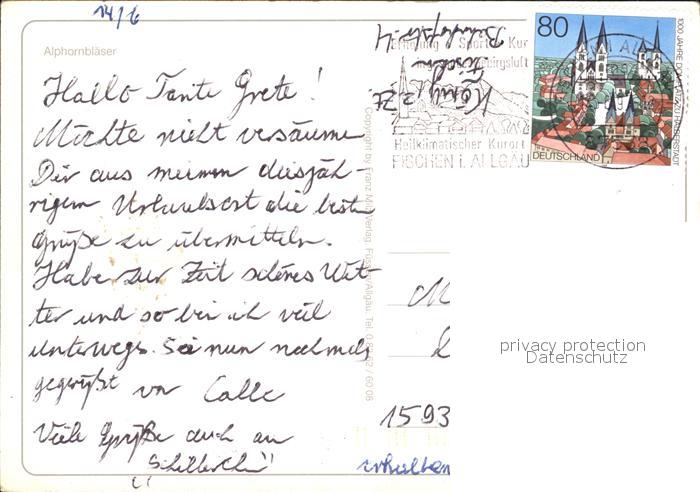 14/6
Alphornbläser
Hallo Tante Grete!
Möchte nicht versäumen
Dir aus meinem diesjäh-
rigen Urlaubsort die besten
Grüße zu übermitteln.
Habe zur Zeit schönes Wet-
ter und so bin ich viel
unterwegs. Sei nun nochmals
gegrüßt von Calle
Viele Grüße auch an
Copyright by Franz Milz Verlag, Füssen/Allgäu, Tel.
Erholung Sport Kur
Heilklimatischer Kurort
FISCHEN i. ALLGÄU
80
1000 JAHRE DOMPLATZ ZU HALBERSTADT
DEUTSCHLAND
z. Zt.
Fischen
M
1593
erhalten
privacy protection
Datenschutz